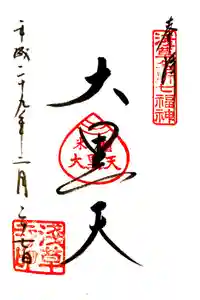 奉拝
浅草名所七福神
大黒天
米 大黒天
平成二十九年十二月二十七日
浅草